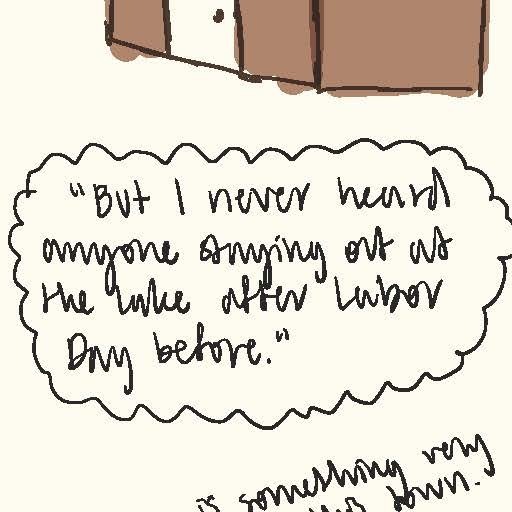 "But I never heard
anyone staying out at
the lake after Labor
Day before."
is something very
town.